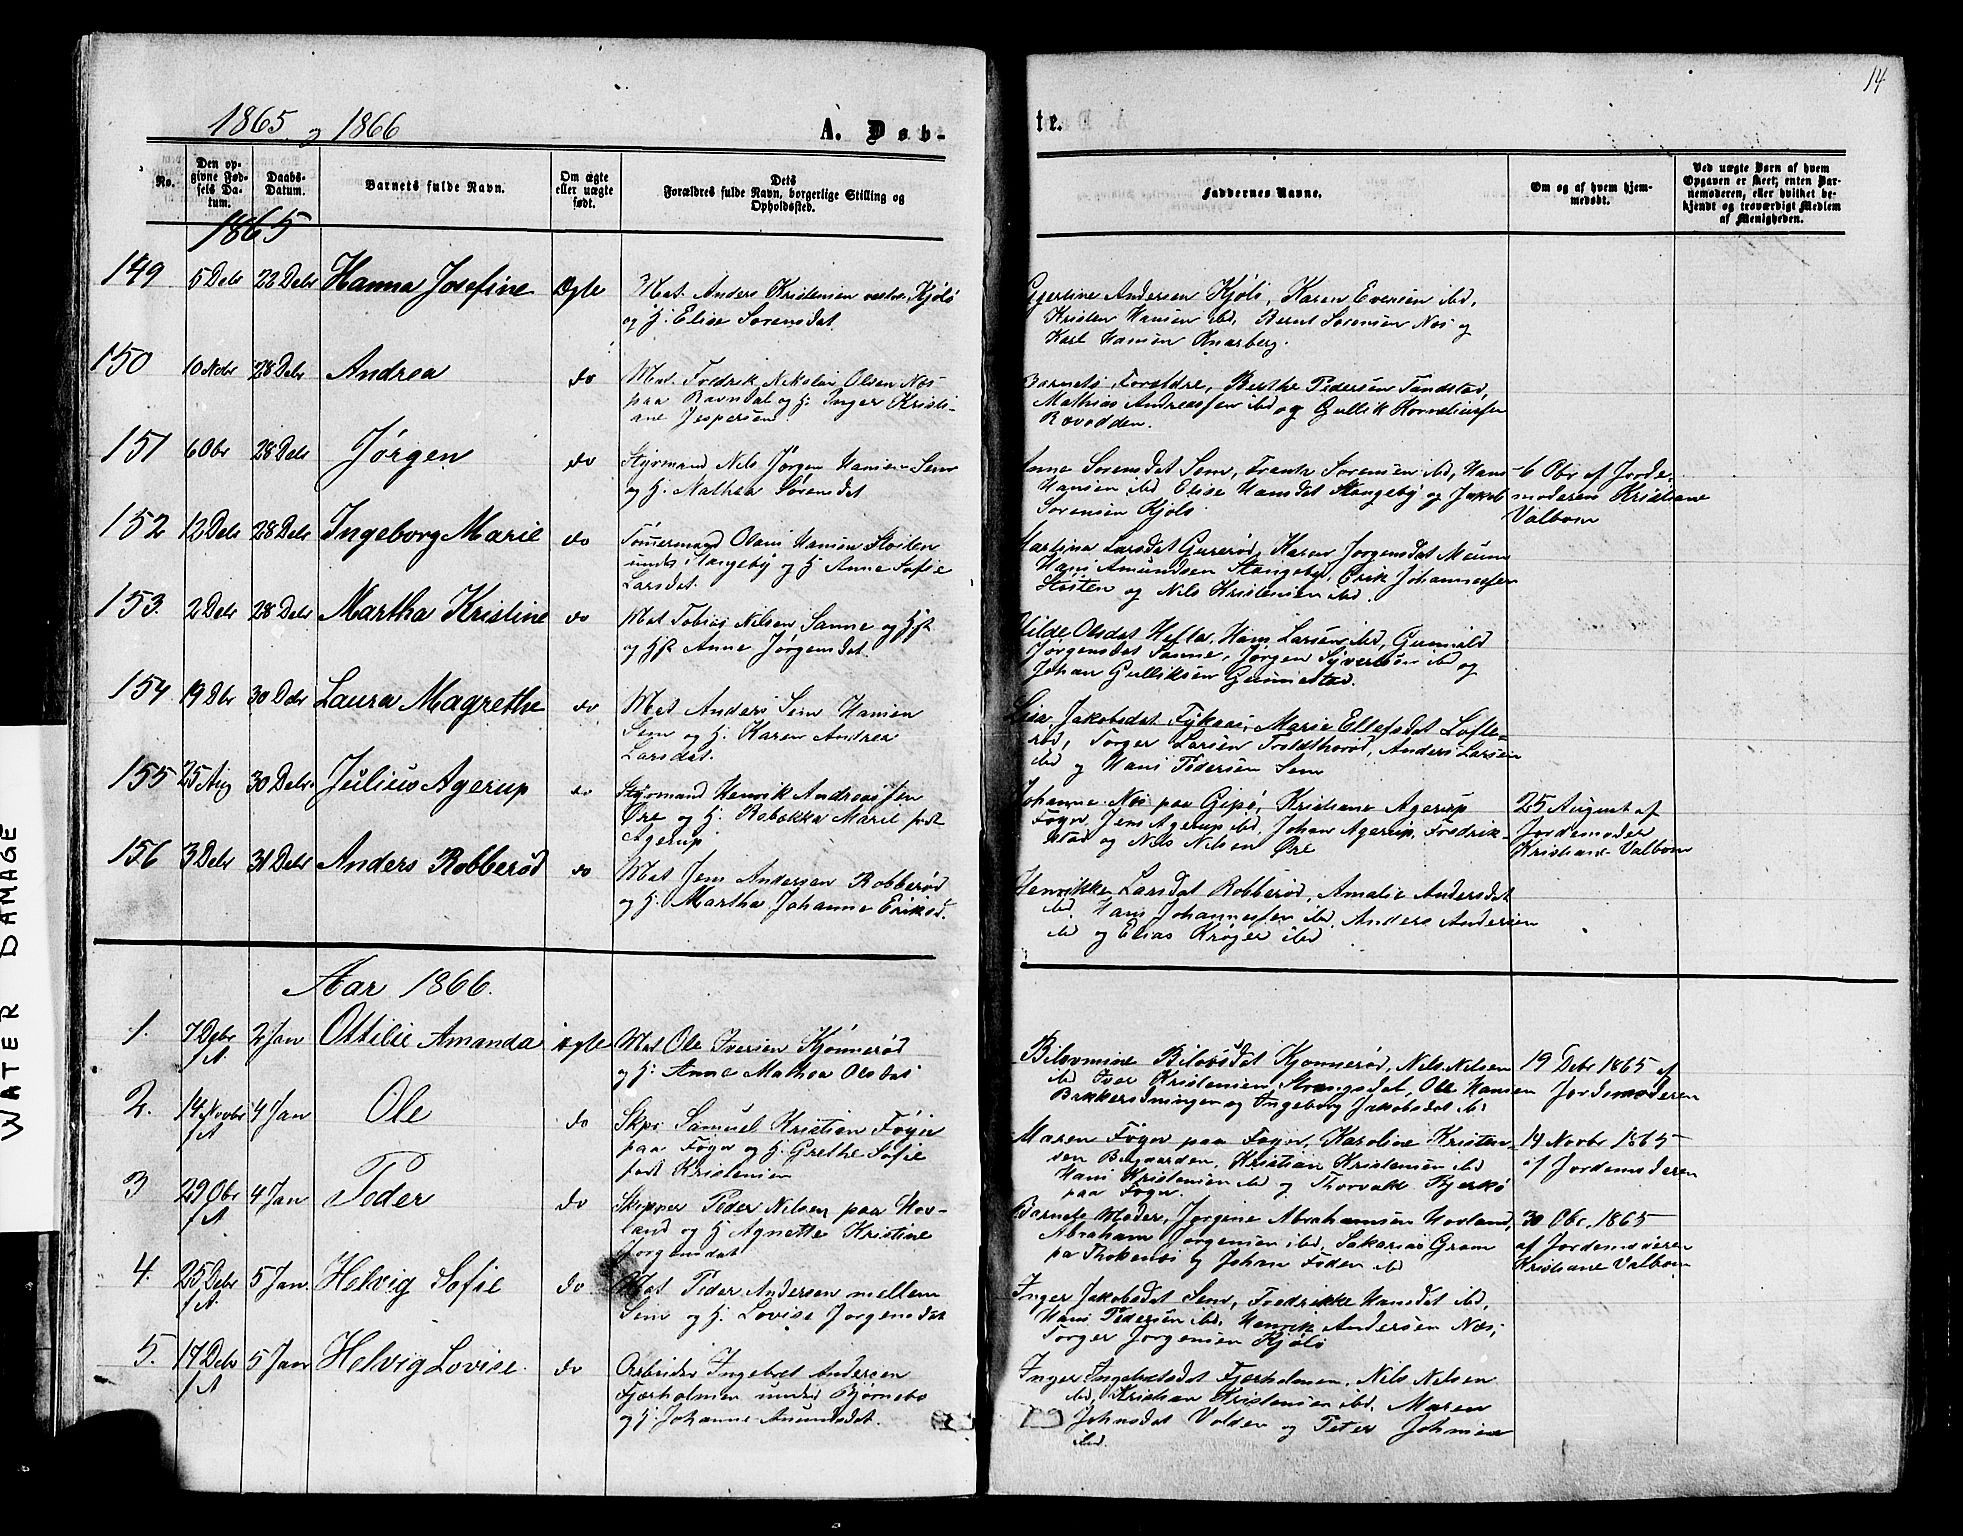 14
1865 og 1866
A. Døb-
te.
No.
Den op-
givne Fød-
sels Da-
tum.
Daabs-
Datum.
Barnets fulde Navn.
Om ægte
eller uægte
født.
Dets
Forældres fulde Navn, borgerlige Stilling og
Opholdssted.
Faddernes Navne.
Om og af hvem hjem-
medøbt.
Ved uægte Børn af hvem
Opgaven er skeet; enten Bar-
nemoderen, eller hvilket be-
kjendt og troværdigt Medlem
af Menigheden.
1865
149 5 Debr 28 Debr Hanna Josefine Ægte
Mat. Anders Kristensen vestre Kjøls
og H. Elise Sorensdat
Andersen Kjøls, Karen Eversen ibd,
Kristen Hansen ibd, Bernt Sorensen Nes og
Karl Hansen Knarberg.
150 10 Nobr 28 Debr Andrea do
Mat. Fredrik Nikolai Olsen Nes
paa Ravndal og H. Inger Kristi-
ane Jespersen
Barnets Forældre, Berthe Pedersen Sandstad,
Mathias Andreassen ibd og Gullik Korneliussen
Rævodden.
151 6 Obr 28 Debr Jørgen do
Styrmand Nils Jørgen Hansen Sem
og H. Mathea Sørensdat
Anne Sorensdat Sem, Frantz Sorensen ibd, Hans
Hansen ibd Elise Hansdat Stangeby og Jakob
Sorensen Kjøls
6 Obr af Jorde-
moderen Kristiane
Valbom
152 12 Debr 28 Debr Ingeborg Marie do
Tømermand Olaus Hansen Stosten
under Stangeby og H Anne Sofie
Larsdat.
Martina Larsdat Gurerød, Karen Jorgensdat Meum
Hans Amundsen Stangeby, Erik Johannessen
Stosten og Nils Kristensen ibd.
153. 2 Debr 28 Debr Martha Kristine do
Mat Tobias Nilsen Sanne og Hst
og Hst Anne Jørgensdat.
Hilde Olsdat Hefle, Hans Larsen ibd, Gunnild
Jørgensdat Sanne, Jørgen Syvertsen ibd og
Johan Gulliksen Gunnestad.
154. 19 Dbr 30 Debr Laura Magrethe do
Mat Anders Sem Hansen
Sem og H. Karen Andrea
Larsdat.
Jakobsdat Fykaas, Marie Ellefsdat Løfte-
rød, Torger Larsen Troldthorød, Anders Larsen
ibd og Hans Pedersen Sem
155 25 Aug 30 Debr. Julius Agerup do
Styrmand Henrik Andreassen
Øre og H. Rebekka Marie født
Agerup
Johanne Nes paa Gipø, Kristiane Agerup
Føyn, Jens Agerup ibd, Johan Agerup, Fredrik-
stad og Nils Nilsen Øre
25 August af
Jordemoder
Kristiane Valbom
156 3 Debr 31 Debr Anders Robberød do
Mat Jens Andersen Robberød
og H. Martha Johanne Eriksd.
Henrikke Larsdat Robberød, Amalie Andersdat
ibd. Hans Johannessen ibd. Anders Andersen
ibd og Elias Krøger ibd
Aar 1866.
1. 7 Debr 2 Jan Ottilie Amanda ægte
f A
Mat Ole Iversen Kjønnerød
og H. Anne Mathea Olsdat
Bilovmine Bilovsdat Kjonnerød, Nils Nilsen
ibd Iver Kristensen Strengsdal, Ole Hansen
Bakkerødningen og Ingeborg Jakobsdat ibd
19 Debr 1865 af
Jordemoderen
2. 14 Novbr 4 Jan Ole do
f A
Skpr Samuel Kristian Føyn
paa Føyn og H. Grethe Sofie
født Kristensen
Maren Føyn paa Føyn, Karoline Kristen-
sen Bugaarden, Kristian Kristensen ibd
Hans Kristensen ibd og Thorvald Bjerkø
paa Føyn.
14 Novbr 1865
af Jordemoderen
3 29 Obr 4 Jan Peder do
f A
Skipper Peder Nilsen paa Hov-
land og H Agnette Kristine
Jorgensdat
Barnets Moder, Jørgine Abrahamsen Hovland,
Abraham Jørgensen ibd, Sakarias Gram
pa Thokenæs og Johan Foden ibd
30 Obr. 1865
af Jordemoderen
Kristiane Valbom
4. 25 Debr 5 Jan Helvig Sofie do
f A
Mat Peder Andersen mellem
Sem og H. Lovise Jorgensdat
Inger Jakobsdat Sem, Fredrikke Hansdat ibd,
Hans Pedersen ibd, Henrik Andersen Nes,
Torger Jorgensen Kjøls
5. 17 Debr 5 Jan Helvig Lovise. do
f A
Arbeider Ingebret Andersen
Fjærholmen under Bjørnebo
og H. Johanne Amundsdat.
Inger Ingebretsdat Fjærholmen, Nils Nilsen
ibd, Kristian Kristensen ibd, Maren
Johnsdat Volden og Peter Johnsen
ibd.
WATER DAMAGE